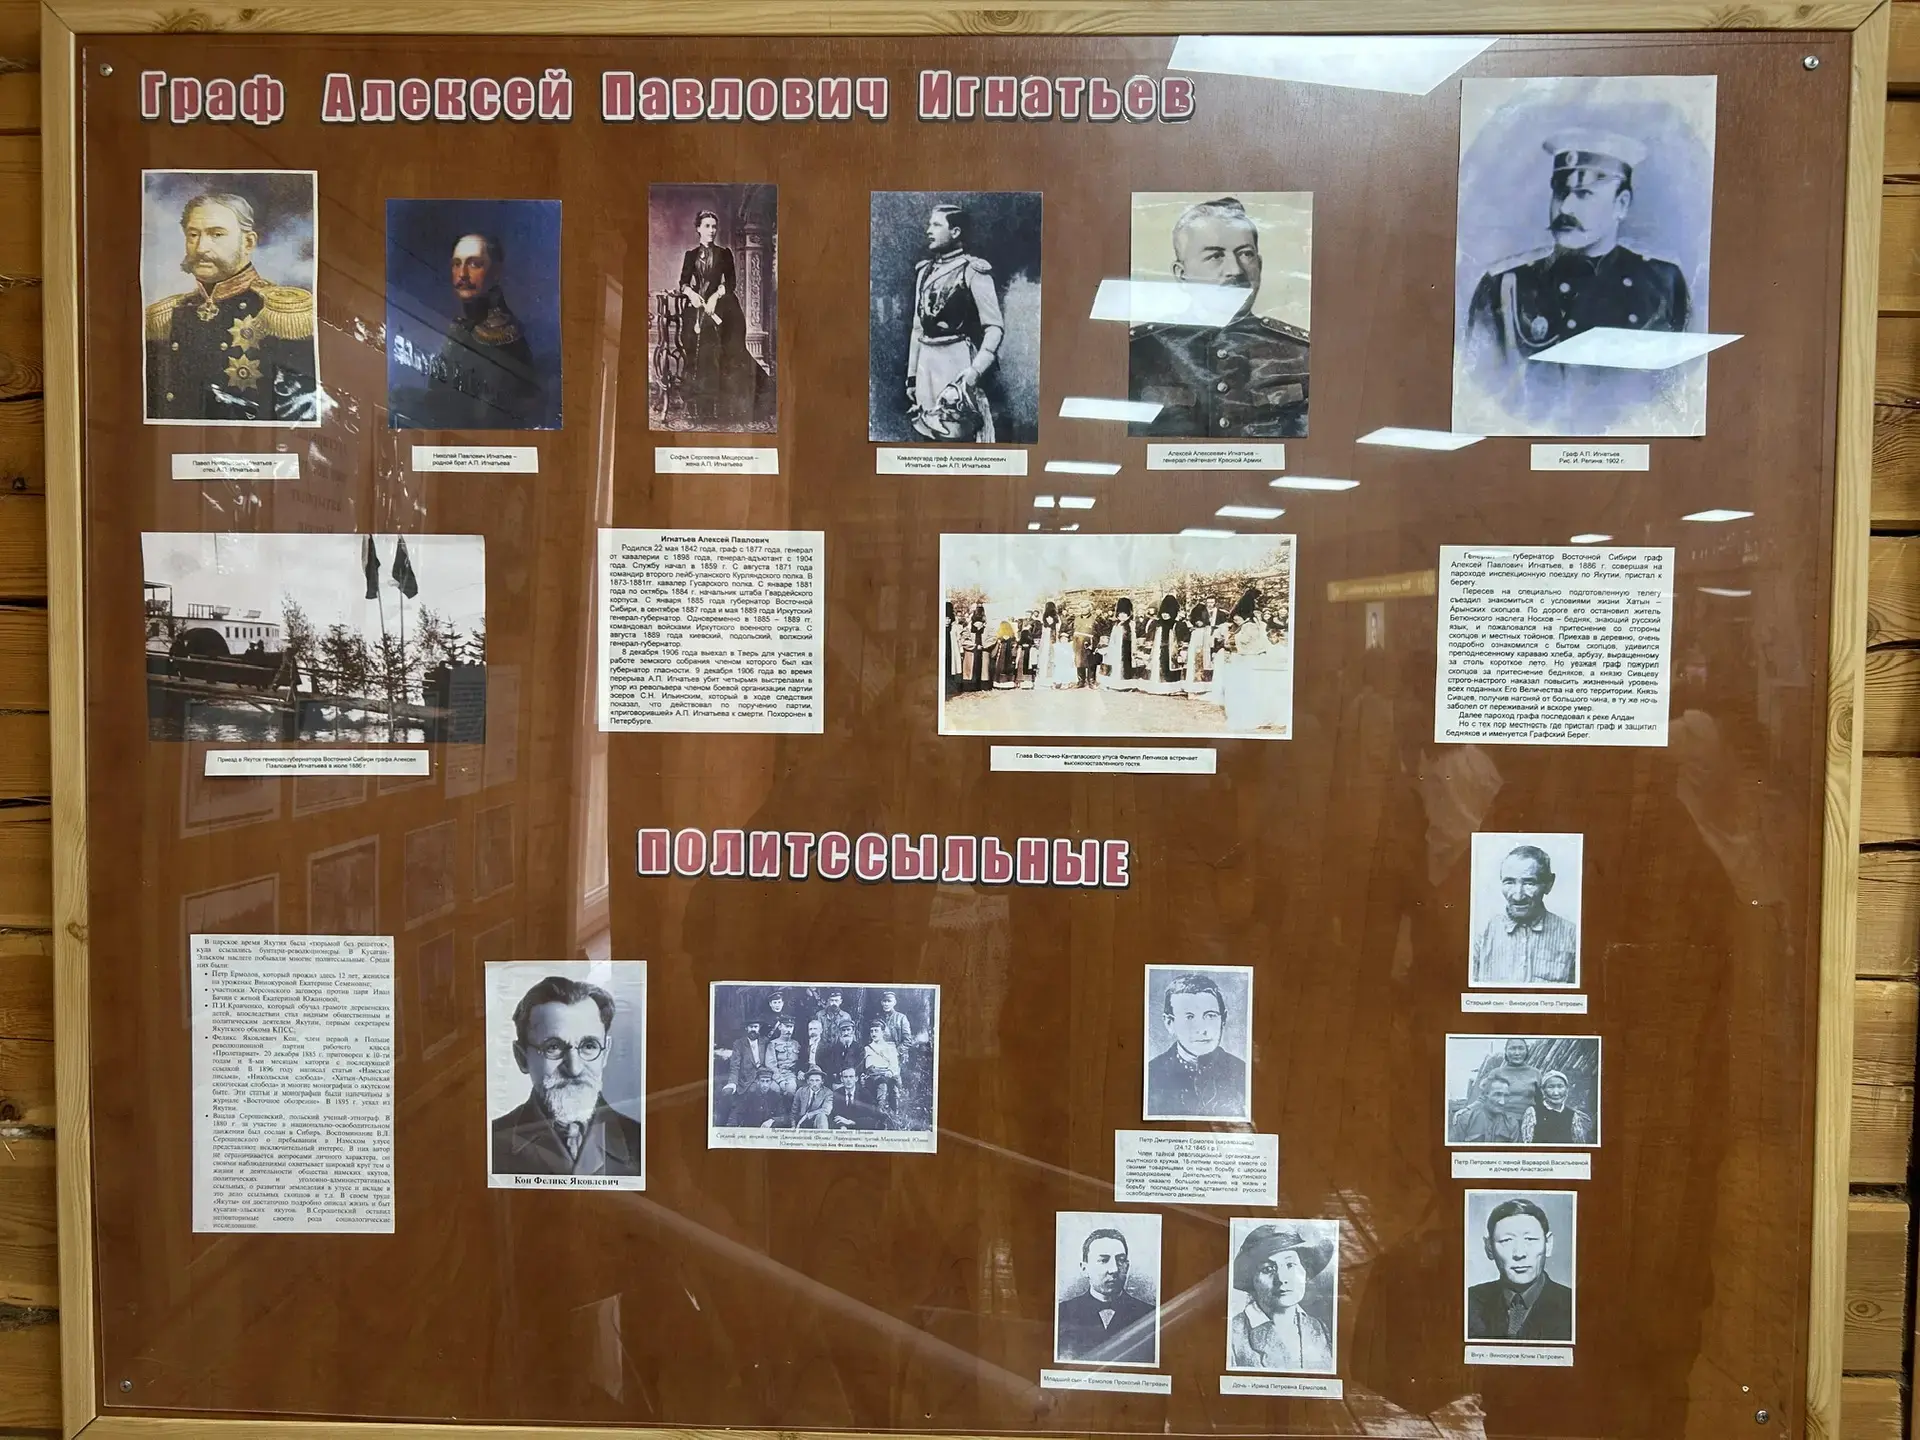 Граф Алексей Павлович Игнатьев
Павел Николаевич Игнатьев –
отец А.П. Игнатьева
Николай Павлович Игнатьев –
родной брат А.П. Игнатьева
Софья Сергеевна Мещерская –
жена А.П. Игнатьева
Кавалергард граф Алексей Алексеевич
Игнатьев – сын А.П. Игнатьева
Алексей Алексеевич Игнатьев –
генерал-лейтенант Красной Армии
Граф А.П. Игнатьев
Рис. И. Репина. 1902 г.
Приезд в Якутск генерал-губернатора Восточной Сибири графа Алексея
Павловича Игнатьева в июле 1886 г.
Игнатьев Алексей Павлович
Родился 22 мая 1842 года, граф с 1877 года, генерал
от кавалерии с 1898 года, генерал-адъютант с 1904
года. Службу начал в 1859 г. С августа 1871 года
командир второго лейб-уланского Курляндского полка. В
1873-1881гг. кавалер Гусарского полка. С января 1881
года по октябрь 1884 г. начальник штаба Гвардейского
корпуса. С января 1885 года губернатор Восточной
Сибири, в сентябре 1887 года и мая 1889 года Иркутский
генерал-губернатор. Одновременно в 1885 – 1889 гг.
командовал войсками Иркутского военного округа. С
августа 1889 года киевский, подольский, волжский
генерал-губернатор.
8 декабря 1906 года выехал в Тверь для участия в
работе земского собрания членом которого был как
губернатор гласности. 9 декабря 1906 года во время
перерыва А.П. Игнатьев убит четырьмя выстрелами в
упор из револьвера членом боевой организации партии
эсеров С.Н. Ильинским, который в ходе следствия
показал, что действовал по поручению партии,
«приговорившей» А.П. Игнатьева к смерти. Похоронен в
Петербурге.
Глава Восточно-Кангаласского улуса Филипп Лепчиков встречает
высокопоставленного гостя.
Генерал – губернатор Восточной Сибири граф
Алексей Павлович Игнатьев, в 1886 г. совершая на
пароходе инспекционную поездку по Якутии, пристал к
берегу.
Пересев на специально подготовленную телегу
съездил знакомиться с условиями жизни Хатын –
Арынских скопцов. По дороге его остановил житель
Бетюнского наслега Носков – бедняк, знающий русский
язык, и пожаловался на притеснение со стороны
скопцов и местных тойонов. Приехав в деревню, очень
подробно ознакомился с бытом скопцов, удивился
преподнесенному караваю хлеба, арбузу, выращенному
за столь короткое лето. Но уезжая граф пожурил
скопцов за притеснение бедняков, а князю Сивцеву
строго-настрого наказал повысить жизненный уровень
всех поданных Его Величества на его территории. Князь
Сивцев, получив нагоняй от большого чина, в ту же ночь
заболел от переживаний и вскоре умер.
Далее пароход графа последовал к реке Алдан
Но с тех пор местность где пристал граф и защитил
бедняков и именуется Графский Берег.
ПОЛИТССЫЛЬНЫЕ
В царское время Якутия была «тюрьмой без решеток»,
куда ссылались бунтари-революционеры. В Кусаган-
Эльском наслеге побывали многие политссыльные. Среди
них были:
• Петр Ермолов, который прожил здесь 12 лет, женился
на уроженке Винокуровой Екатерине Семеновне;
• участники Херсонского заговора против царя Иван
Бачин с женой Екатериной Южаковой;
• П.И.Кравченко, который обучал грамоте деревенских
детей, впоследствии стал видным общественным и
политическим деятелем Якутии, первым секретарем
Якутского обкома КПСС;
• Феликс Яковлевич Кон, член первой в Польше
революционной партии рабочего класса
«Пролетариат». 20 декабря 1885 г. приговорен к 10-ти
годам и 8-ми месяцам каторги с последующей
ссылкой. В 1896 году написал статьи «Намские
письма», «Никольская слобода», «Хатын-Арынская
скопческая слобода» и многие монографии о якутском
быте. Эти статьи и монографии были напечатаны в
журнале «Восточное обозрение». В 1895 г. уехал из
Якутии.
• Вацлав Серошевский, польский ученый-этнограф. В
1880 г. за участие в национально-освободительном
движении был сослан в Сибирь. Воспоминание В.Л.
Серошевского о пребывании в Намском улусе
представляют исключительный интерес. В них автор
не ограничивается вопросами личного характера, он
своими наблюдениями охватывает широкий круг тем о
жизни и деятельности общества намских якутов,
политических и уголовно-административных
ссыльных, о развитии земледелия в улусе и вкладе в
это дело ссыльных скопцов и т.д. В своем труде
«Якуты» он достаточно подробно описал жизнь и быт
кусаган-эльских якутов. В.Серошевский оставил
неповторимые своего рода социологические
исследование.
Кон Феликс Яковлевич
Временный революционный комитет Польши
Петр Дмитриевич Ермолов (каракозовец)
(24.12.1845 г.р.)
Член тайной революционной организации –
ишутинского кружка, 18-летним юношей вместе со
своими товарищами он начал борьбу с царским
самодержавием. Деятельность ишутинского
кружка оказало большое влияние на жизнь и
борьбу последующих представителей русского
освободительного движения.
Старший сын - Винокуров Петр Петрович
Петр Петрович с женой Варварой Васильевной
и дочерью Анастасией
Младший сын – Ермолов Прокопий Петрович
Дочь - Ирина Петровна Ермолова
Внук - Винокуров Клим Петрович